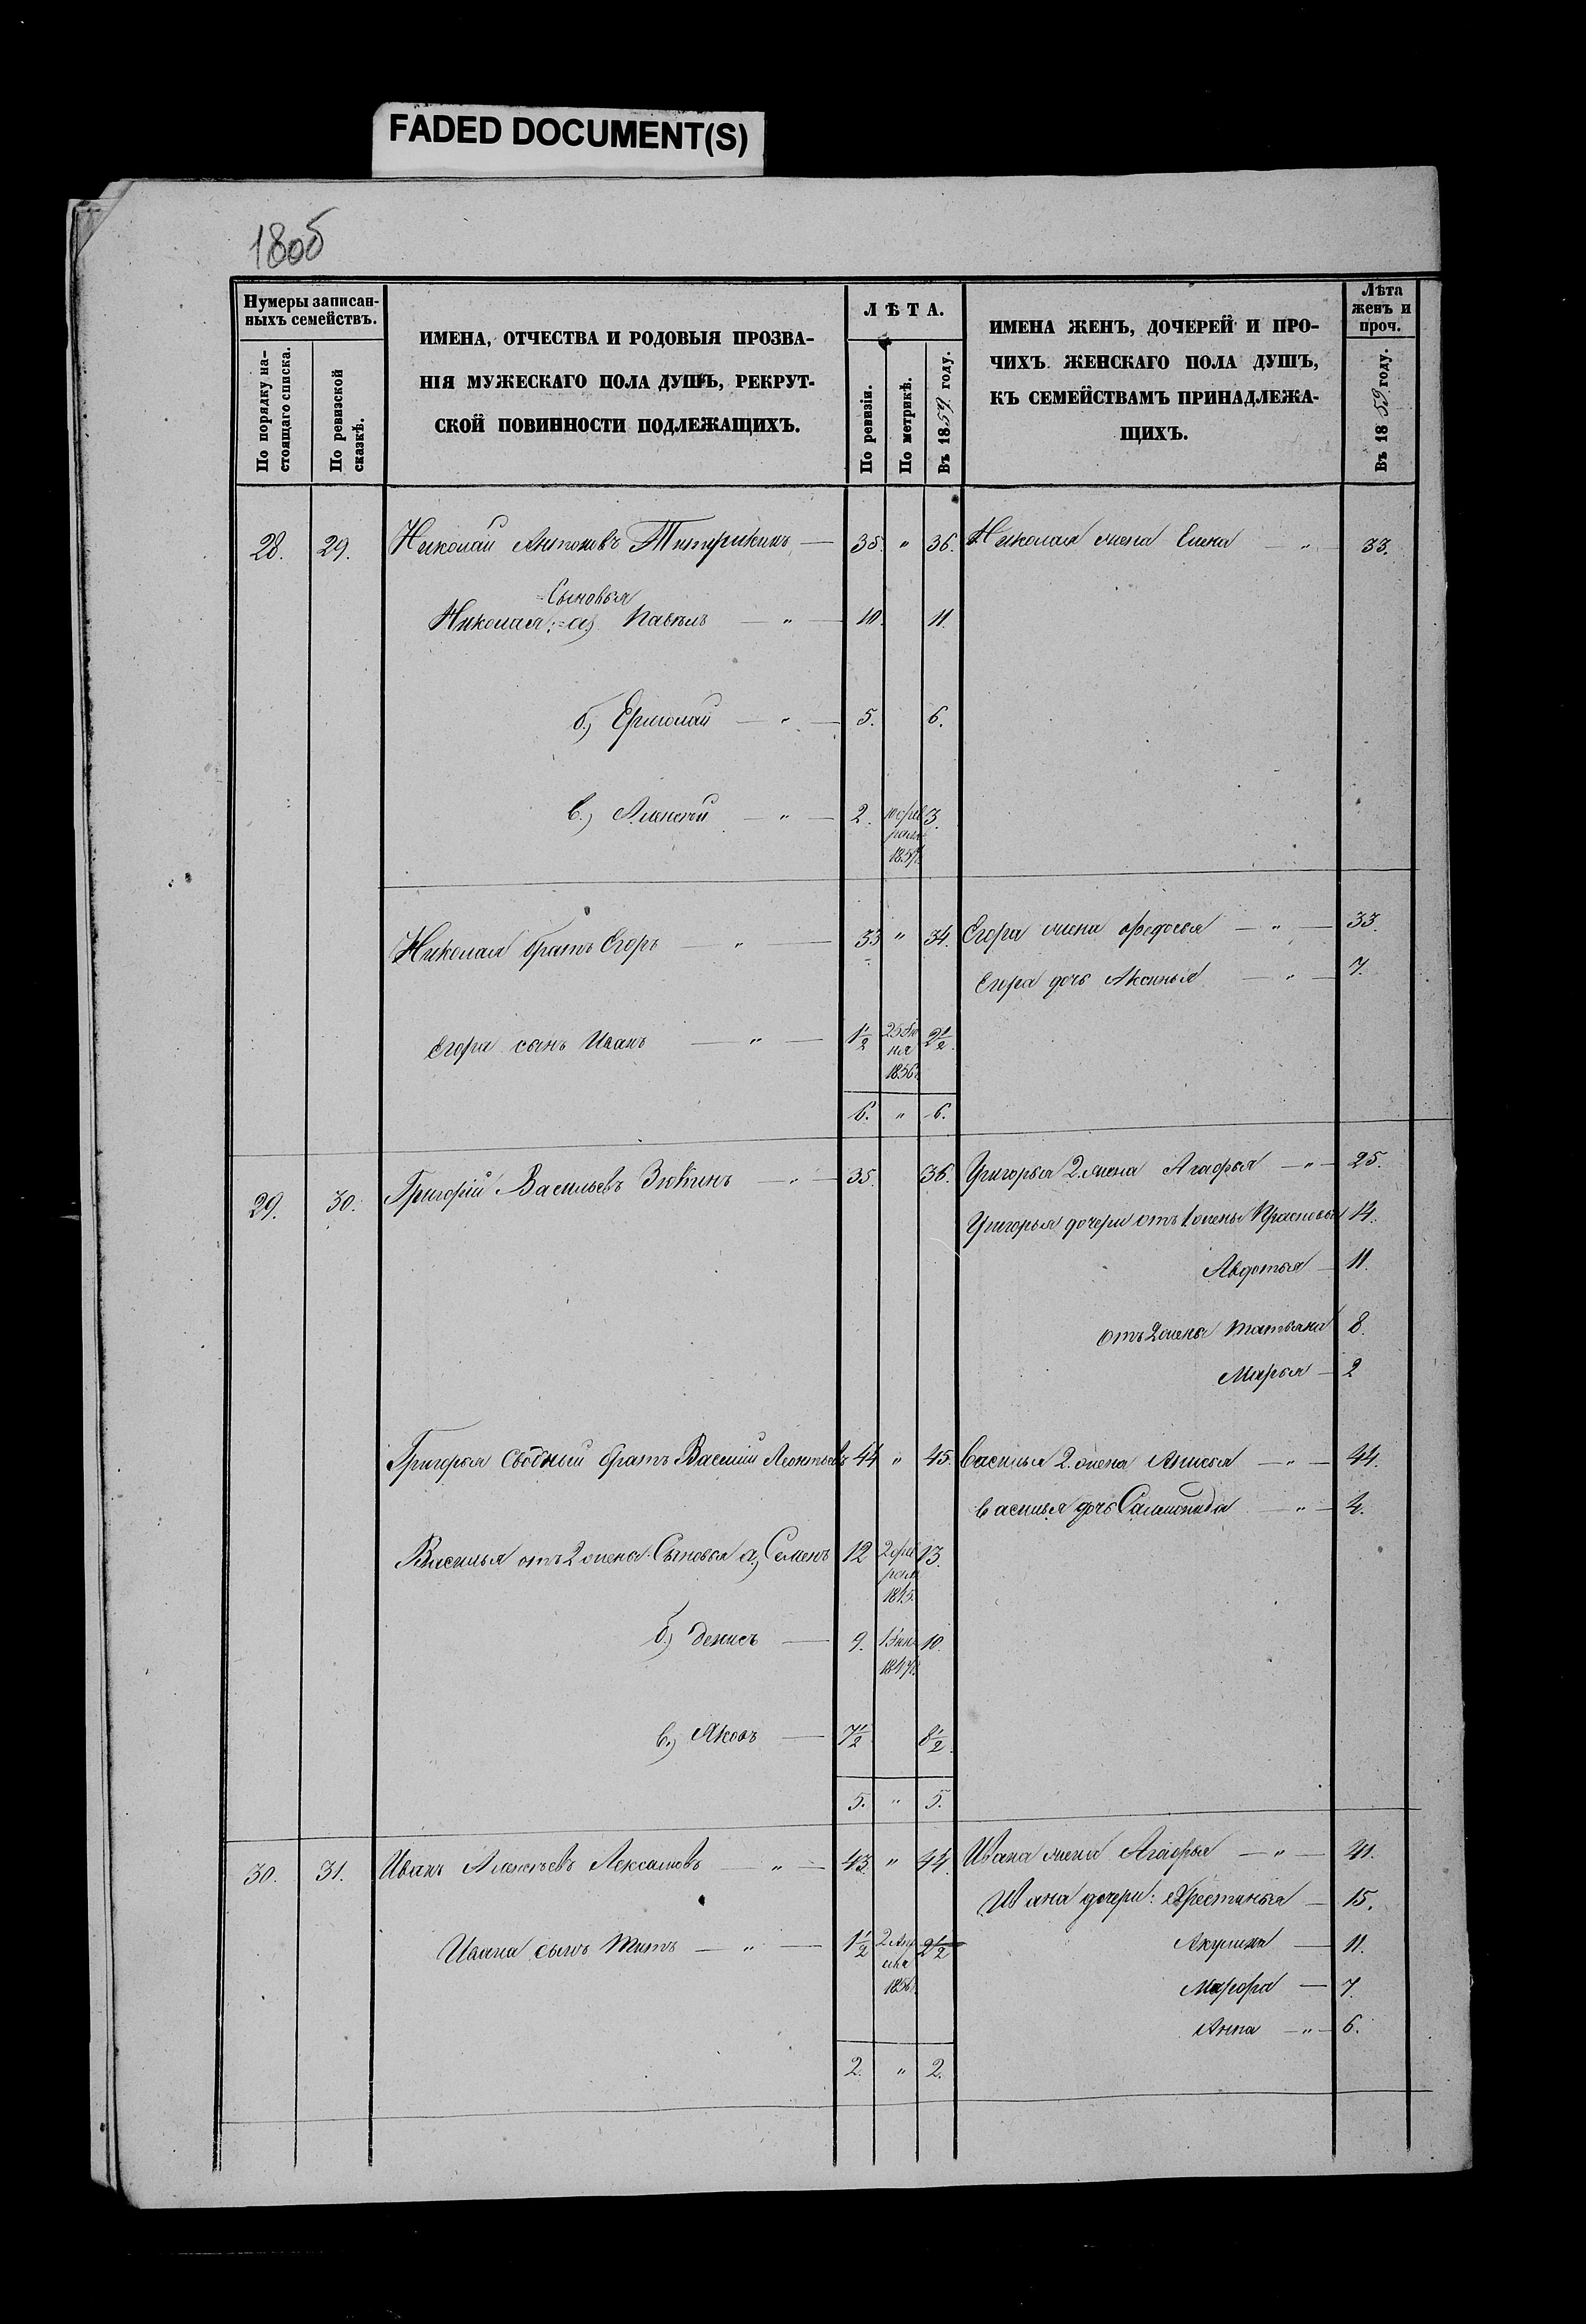 FADED DOCUMENT(S)
180об
Нумеры записан-
ныхъ семействъ.
По порядку на-
стоящаго списка.
По ревизской
сказкѣ.
ИМЕНА, ОТЧЕСТВА И РОДОВЫЯ ПРОЗВА-
НІЯ МУЖЕСКАГО ПОЛА ДУШЪ, РЕКРУТ-
СКОЙ ПОВИННОСТИ ПОДЛЕЖАЩИХЪ.
ЛѢТА.
По ревизіи.
По метрикѣ.
Въ 1859 году.
ИМЕНА ЖЕНЪ, ДОЧЕРЕЙ И ПРО-
ЧИХЪ ЖЕНСКАГО ПОЛА ДУШЪ,
КЪ СЕМЕЙСТВАМЪ ПРИНАДЛЕЖА-
ЩИХЪ.
Лѣта
женъ и
проч.
Въ 1859 году.
28. 29. Николай Антоновъ — 35. " 36. Николая жена Елена — " — 33.
Сыновья
Николая: а) Павелъ — " — 10. 11.
б.) Ермолай — " — 5. 6.
в.) Алексѣй — " — 2. 10 фев 3.
раля
1857.
Николая братъ Егоръ — " — 33 " 34. Егора жена Федосья — " — 33.
Егора дочь Аксинья — " — 7.
Егора сынъ Иванъ — " — 1½ 25 Iю 2½.
ня
1856.
6. " 6.
29. 30. Григорій Васильевъ Зюкинъ — " — 35. 36. Григорья 2. жена Агафья — " — 25.
Григорья дочери отъ 1 жены Прасковья 14.
Авдотья — 11.
отъ 2 жены Татьяна 8.
Марья — 2
Григорья сводный братъ Василій Леонтьевъ 44 " 45. Василья 2. жена Анисья — " — 44.
Василья дочь Саломонида — " — 4.
Василья отъ 2 жены Сыновья а) Семенъ 12 2 фев 13.
раля
1845.
б.) Денисъ — 9. 10.
1847.
в.) Яковъ — 7½ 8½.
5. " 5.
30. 31. Иванъ Алексѣевъ Лексашовъ — " — 43. " 44. Ивана жена Агафья — " — 41.
Ивана дочери: Хрестинья — 15.
Ивана сынъ Титъ — " — 1½ 2 Апр 2½ Акулина — 11.
еля
1856. Марфа — 7.
Анна — " — 6.
2. " 2.